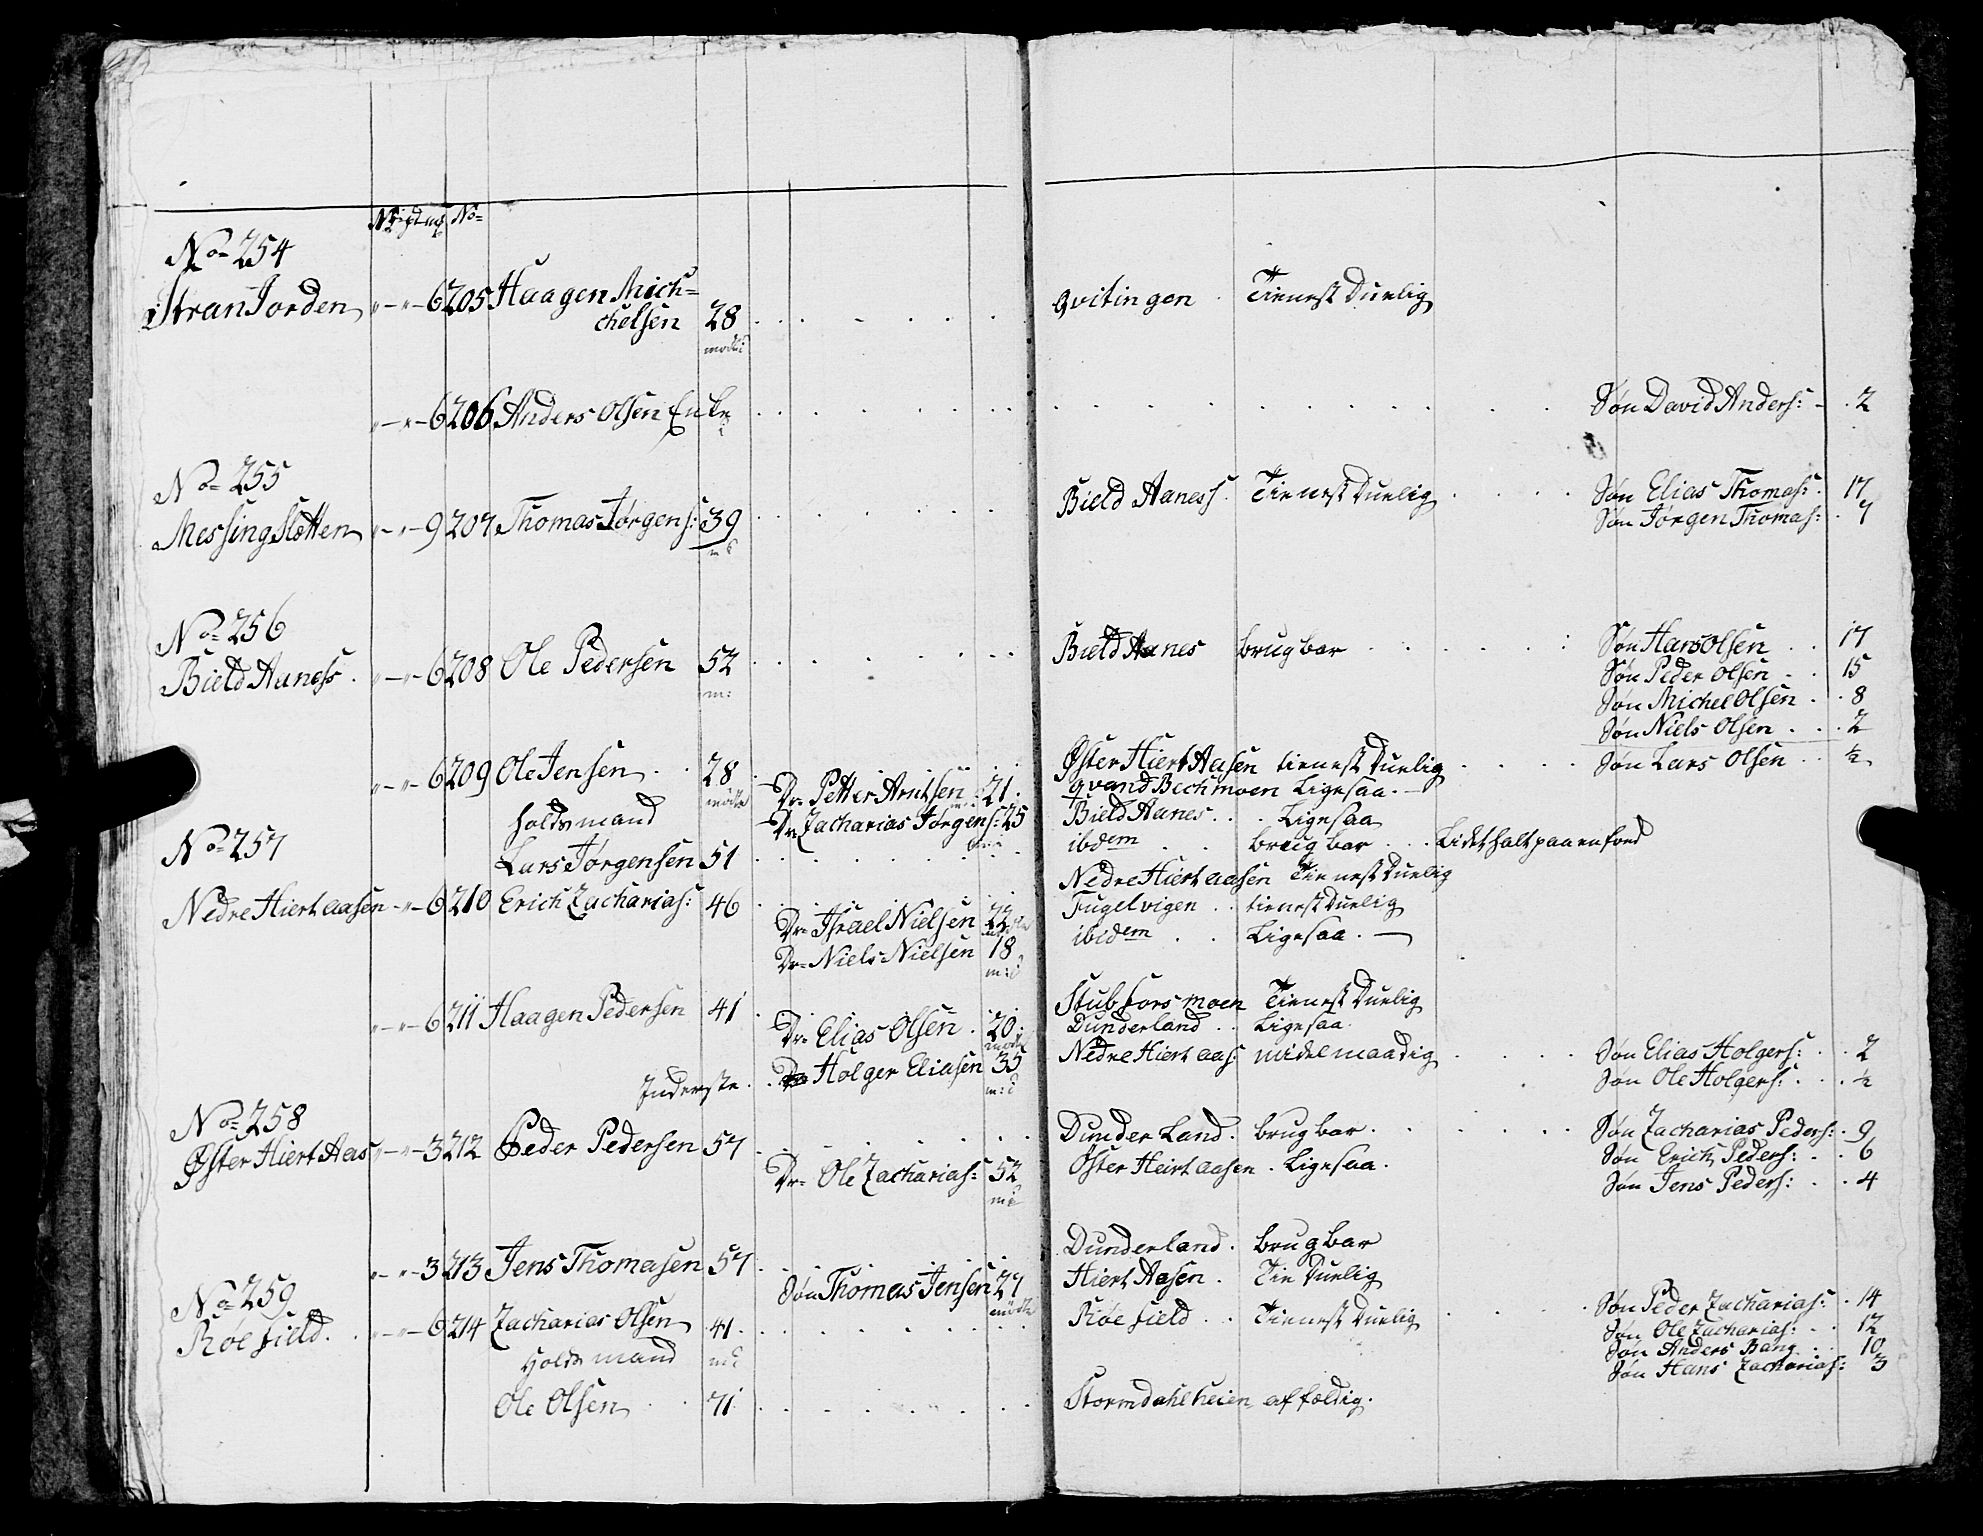 No 254
StranJorden " — " — 6 205 Haagen Mich=
chelsen 28 qvitingen Tienest Duelig
mødte
" — " — 6 206 Anders Olsen Enke Søn David Anders: 2
No 255
MessingSlotten " — " — 9 207 Thomas Jørgens: 39 Bield Aaness Tienest Duelig Søn Elias Thomas: 17
Søn Jørgen Thomas: 7
No 256
Bield Aaness " — " — 6 208 Ole Pedersen 52 Bield Aanes brugbar Søn Hans Olsen 17
m: Søn Peder Olsen 15
Søn Michel Olsen 8
Søn Niels Olsen 2
" — " — 6 209 Ole Jensen 28 Øster Hiert Aasen tienest Duelig Søn Lars Olsen ½
mødte Dr= Petter Arntsen 21 qvand Bechmoen Ligesaa. —
holdsmand Dr Zacharias Jørgens: 25 Bield Aanes Ligesaa
No 257
Lars Jørgensen 51 ibdem brugbar Lidet halt paa en fod
Nedre Hiertaasen " — 6 210 Erich Zacharias: 46 Nedre Hiertaasen Tienest Duelig
Dr= Israel Nielsen 22 Fugelvigen tienest Duelig
Dr= Niels Nielsen 18 ibidem Ligesaa. —
m:d
" — " — 6 211 Haagen Pedersen 41 Stubforsmoen Tienest Duelig
Dr= Elias Olsen 20 Dunderland Ligesaa
mødte
Inderste Holger Eliasen 35 Nedre Hiertaas: midelmaadig Søn Elias Holgers: 2
m:d Søn Ole Holgers: ½
No 258
Øster Hiert Aas " — " — 3 212 Peder Pedersen 57 Dunder Land brugbar Søn Zacharias Peders: 9
Dr= Ole Zacharias: 52 Øster Heirtaasen Ligesaa Søn Erich Peders: 6
Søn Jens Peders: 4
" — " — 3 213 Jens Thomasen 57 Dunderland brugbar
No 259
Søn Thomas Jensen 27 Hiert Aasen Tie Duelig
mødte
Røe field " — " — 6 214 Zacharias Olsen 41 Røe field Tienest Duelig Søn Peder Zacharias: 14
Holdsmand Søn Ole Zacharias: 12
Søn Anders Bang 10
Søn Hans Zacharias: 3
Ole Olsen 71 Stormdahlheien affældig.